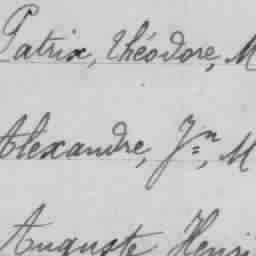 Patrix, Théodore, M
Alexandre, Jn, M
Auguste Henri